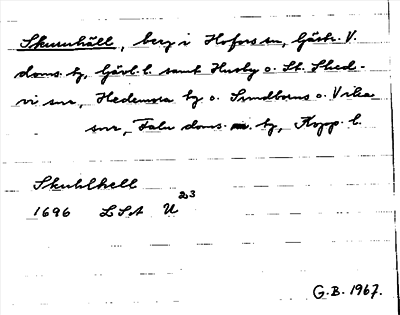 Skuruhäll, berg i Hofors sn, Gästr. V.
doms. tg, Gävl. l. samt Husby o. St. Sked-
vi snr, Hedemora tg o. Sundborns o. Vika
snr, Falu doms. tg, Kopp. l.
Skuhlhell
1696 LSA U23
G.B. 1967.